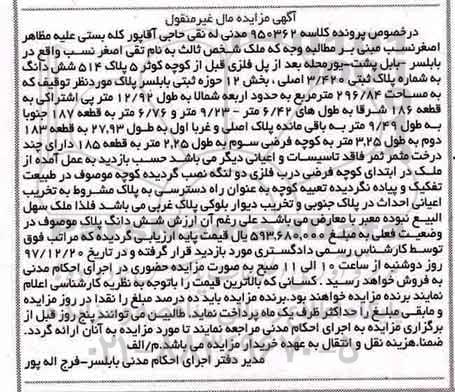 آگهی مزایده مال غیرمنقول
درخصوص پرونده کلاسه ۹۵۰۳۶۲ مدنی له نقی حاجی آقاپور کله بستی علیه مظاهر
اصغرنسب مبنی بر مطالبه وجه که ملک شخص ثالث به نام تقی اصغر نسب واقع در
بابلسر -بابل پشت-یورمحله بعد از پل فلزی قبل از کوچه کوثر ۵ پلاک ۵۱۴ شش دانگ
به شماره پلاک ثبتی ۳/۴۲۰ اصلی ، بخش ۱۲ حوزه ثبتی بابلسر پلاک موردنظر توقیف که
به مساحت ۲۹۶/۸۴ مترمربع به حدود اربعه شمالا به طول ۱۲/۹۲ متر پی اشتراکی به
قطعه ۱۸۶ شرقا به طول های ۶/۴۲ متر - ۹/۲۳ متر و ۶/۷۶ متر به قطعه ۱۸۷ جنوبا
به طول ۹/۴۹ متر به باقی مانده پلاک اصلی و غربا اول به طول ۲۷٫۹۳ به قطعه ۱۸۳
دوم به طول ۳٫۲۵ متر به کوچه فرضی سوم به طول ۲٫۲۵ متر به قطعه ۱۸۵ دارای چند
درخت مثمر ثمر فاقد تاسیسات و اعیانی دیگر می باشد حسب بازدید به عمل آمده از
ملک در ابتدای کوچه فرضی درب فلزی دو لنگه نصب گردیده کوچه موصوف در طبیعت
تفکیک و پیاده نگردیده تعبیه کوچه به عنوان راه دسترسی به پلاک مشروط به تخریب
اعیانی احداث در پلاک جنوبی و تخریب دیوار بلوکی پلاک غربی می باشد فلذا ملک سهل
البیع نبوده معبر با معارض می باشد علی رغم آن ارزش شش دانگ پلاک موصوف در
وضعیت فعلی به مبلغ ۵۹۳٫۶۸۰٫۰۰۰ ریال قیمت پایه ارزیابی گردیده که مراتب فوق
توسط کارشناس رسمی دادگستری مورد بازدید قرار گرفته و در تاریخ ۹۷/۱۲/۲۰
روز دوشنبه از ساعت ۱۰ الی ۱۱ صبح به صورت مزایده حضوری در اجرای احکام مدنی
به فروش خواهد رسید . کسانی که بالاترین قیمت را باتوجه به نظریه کارشناسی اعلام
نمایند برنده مزایده خواهند بود. برنده مزایده باید ده درصد مبلغ را نقدا در روز مزایده
و مابقی مبلغ را حداکثر ظرف یک ماه پرداخت نماید. طالبین می توانند پنج روز قبل از
برگزاری مزایده به اجرای احکام مدنی مراجعه نمایند تا مورد مزایده به آنان ارائه گردد.
ضمنا.هزینه نقل و انتقال به عهده خریدار مزایده می باشد.م/الف
مدیر دفتر اجرای احکام مدنی بابلسر-فرج اله پور